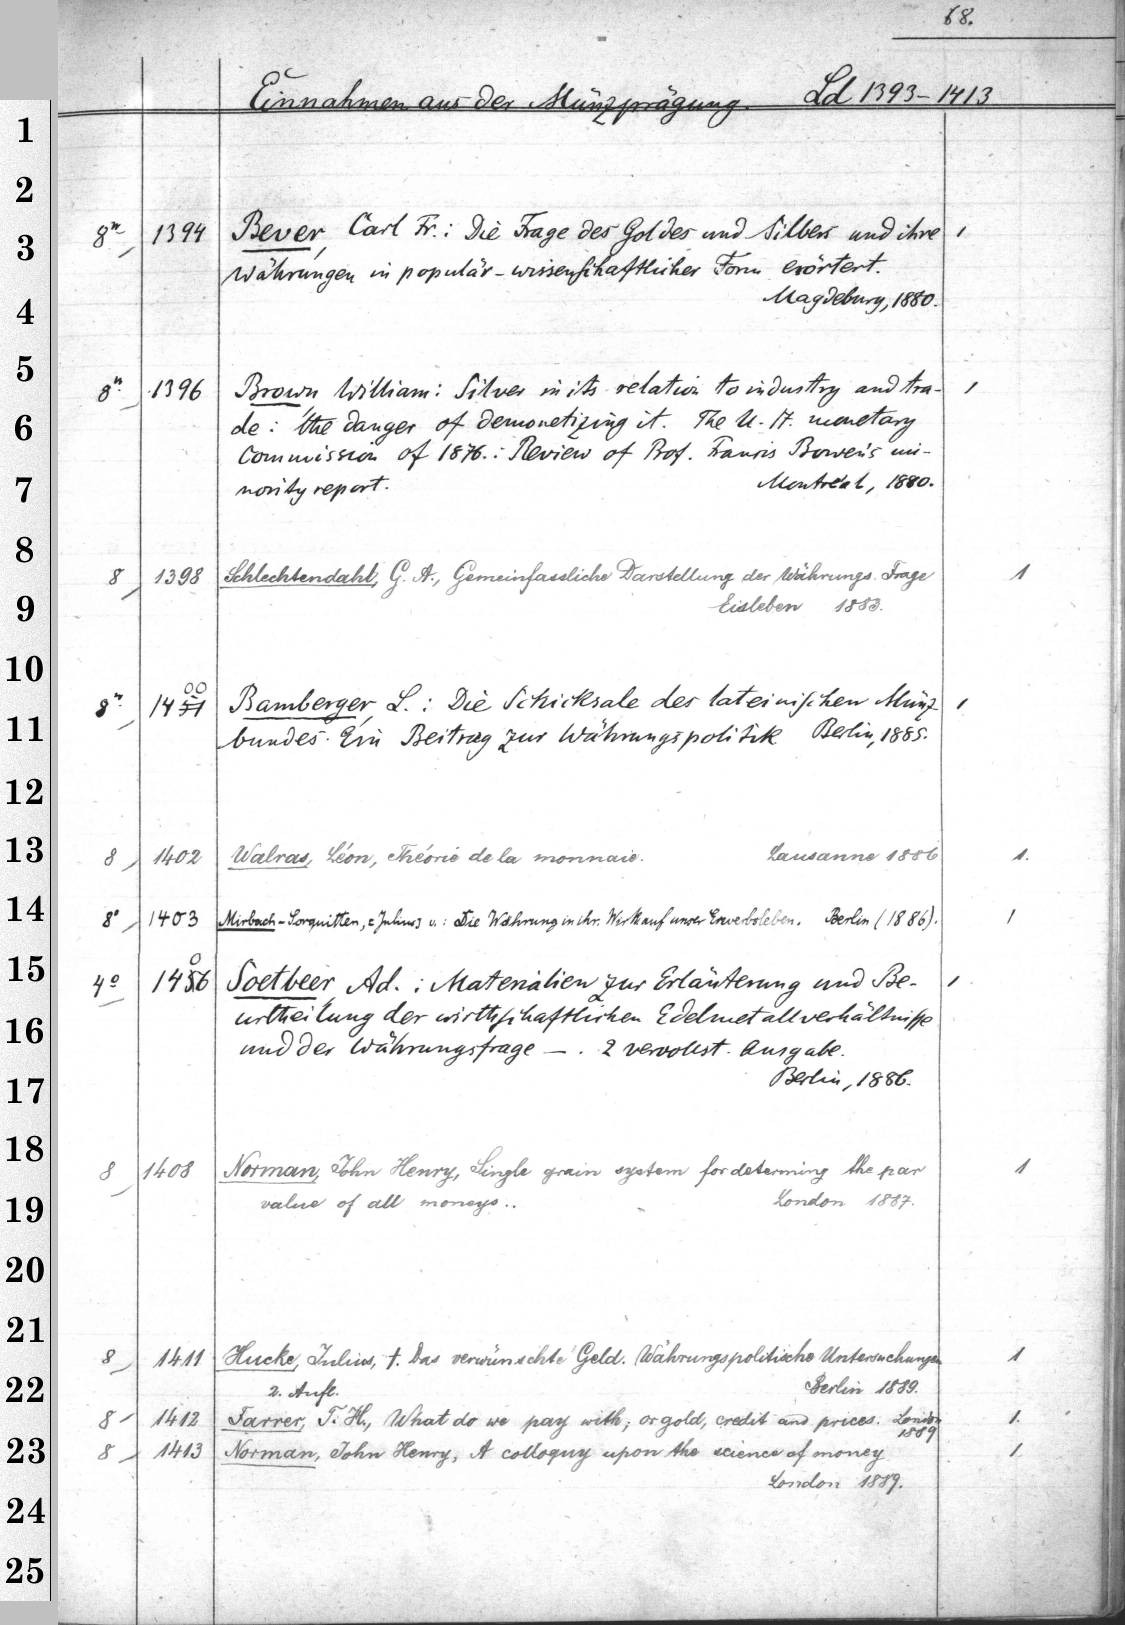 68.
Einnahmen aus der Münzprägung. Ld 1393-1413
1
2
3
4
5
6
7
8
9
10
11
12
13
14
15
16
17
18
19
20
21
22
23
24
25
8° 1394 Bever, Carl Fr.: Die Frage des Goldes und Silbers und ihre 1
Währungen in populär-wissenschaftlicher Form erörtert.
Magdeburg, 1880.
8° 1396 Brown William: Silver in its relation to industry and tra- 1
de: the danger of demonetizing it. The U. St. monetary
commission of 1876.: Review of Prof. Francis Bowen's mi-
nority report. Montreal, 1880.
8 1398 Schlechtendahl, G. A., Gemeinfassliche Darstellung der Währungs-Frage 1
Eisleben 1883.
8° 1400 Bamberger, L.: Die Schicksale des lateinischen Münz 1
bundes. Ein Beitrag zur Währungspolitik Berlin, 1885.
8 1402 Walras, Léon, Théorie de la monnaie. Lausanne 1886 1.
8° 1403 Mirbach-Sorquitten, [Julius] v.: Die Währung in ihr. Wirk auf unser Erwerbsleben. Berlin (1886). 1
4° 1406 Soetbeer Ad.: Materialien zur Erläuterung und Be- 1
urtheilung der wirthschaftlichen Edelmetallverhältnisse
und der Währungsfrage —. 2 vervollst. Ausgabe.
Berlin, 1886.
8 1408 Norman, John Henry, Single grain system for determing the par 1
value of all moneys.. London 1887.
8 1411 Hucke, Julius, †. Das verwünschte Geld. Währungspolitische Untersuchungen 1
2. Aufl. Berlin 1889.
8 1412 Farrer, T. H., What do we pay with; or gold, credit and prices. London 1889 1.
8 1413 Norman, John Henry, A colloquy upon the science of money 1.
London 1889.